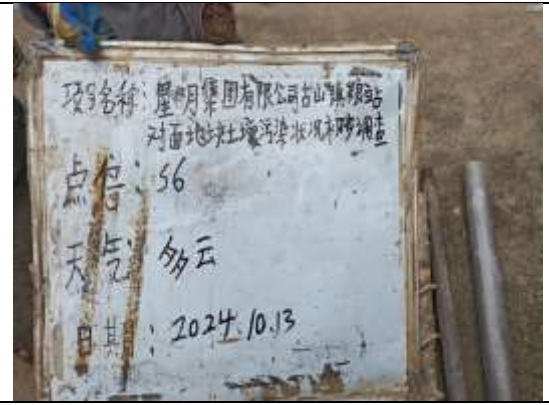 项目名称：星月集团有限公司古山镇粮站
对面地块土壤污染状况初步调查
点位：S6
天气：多云
日期：2024.10.13